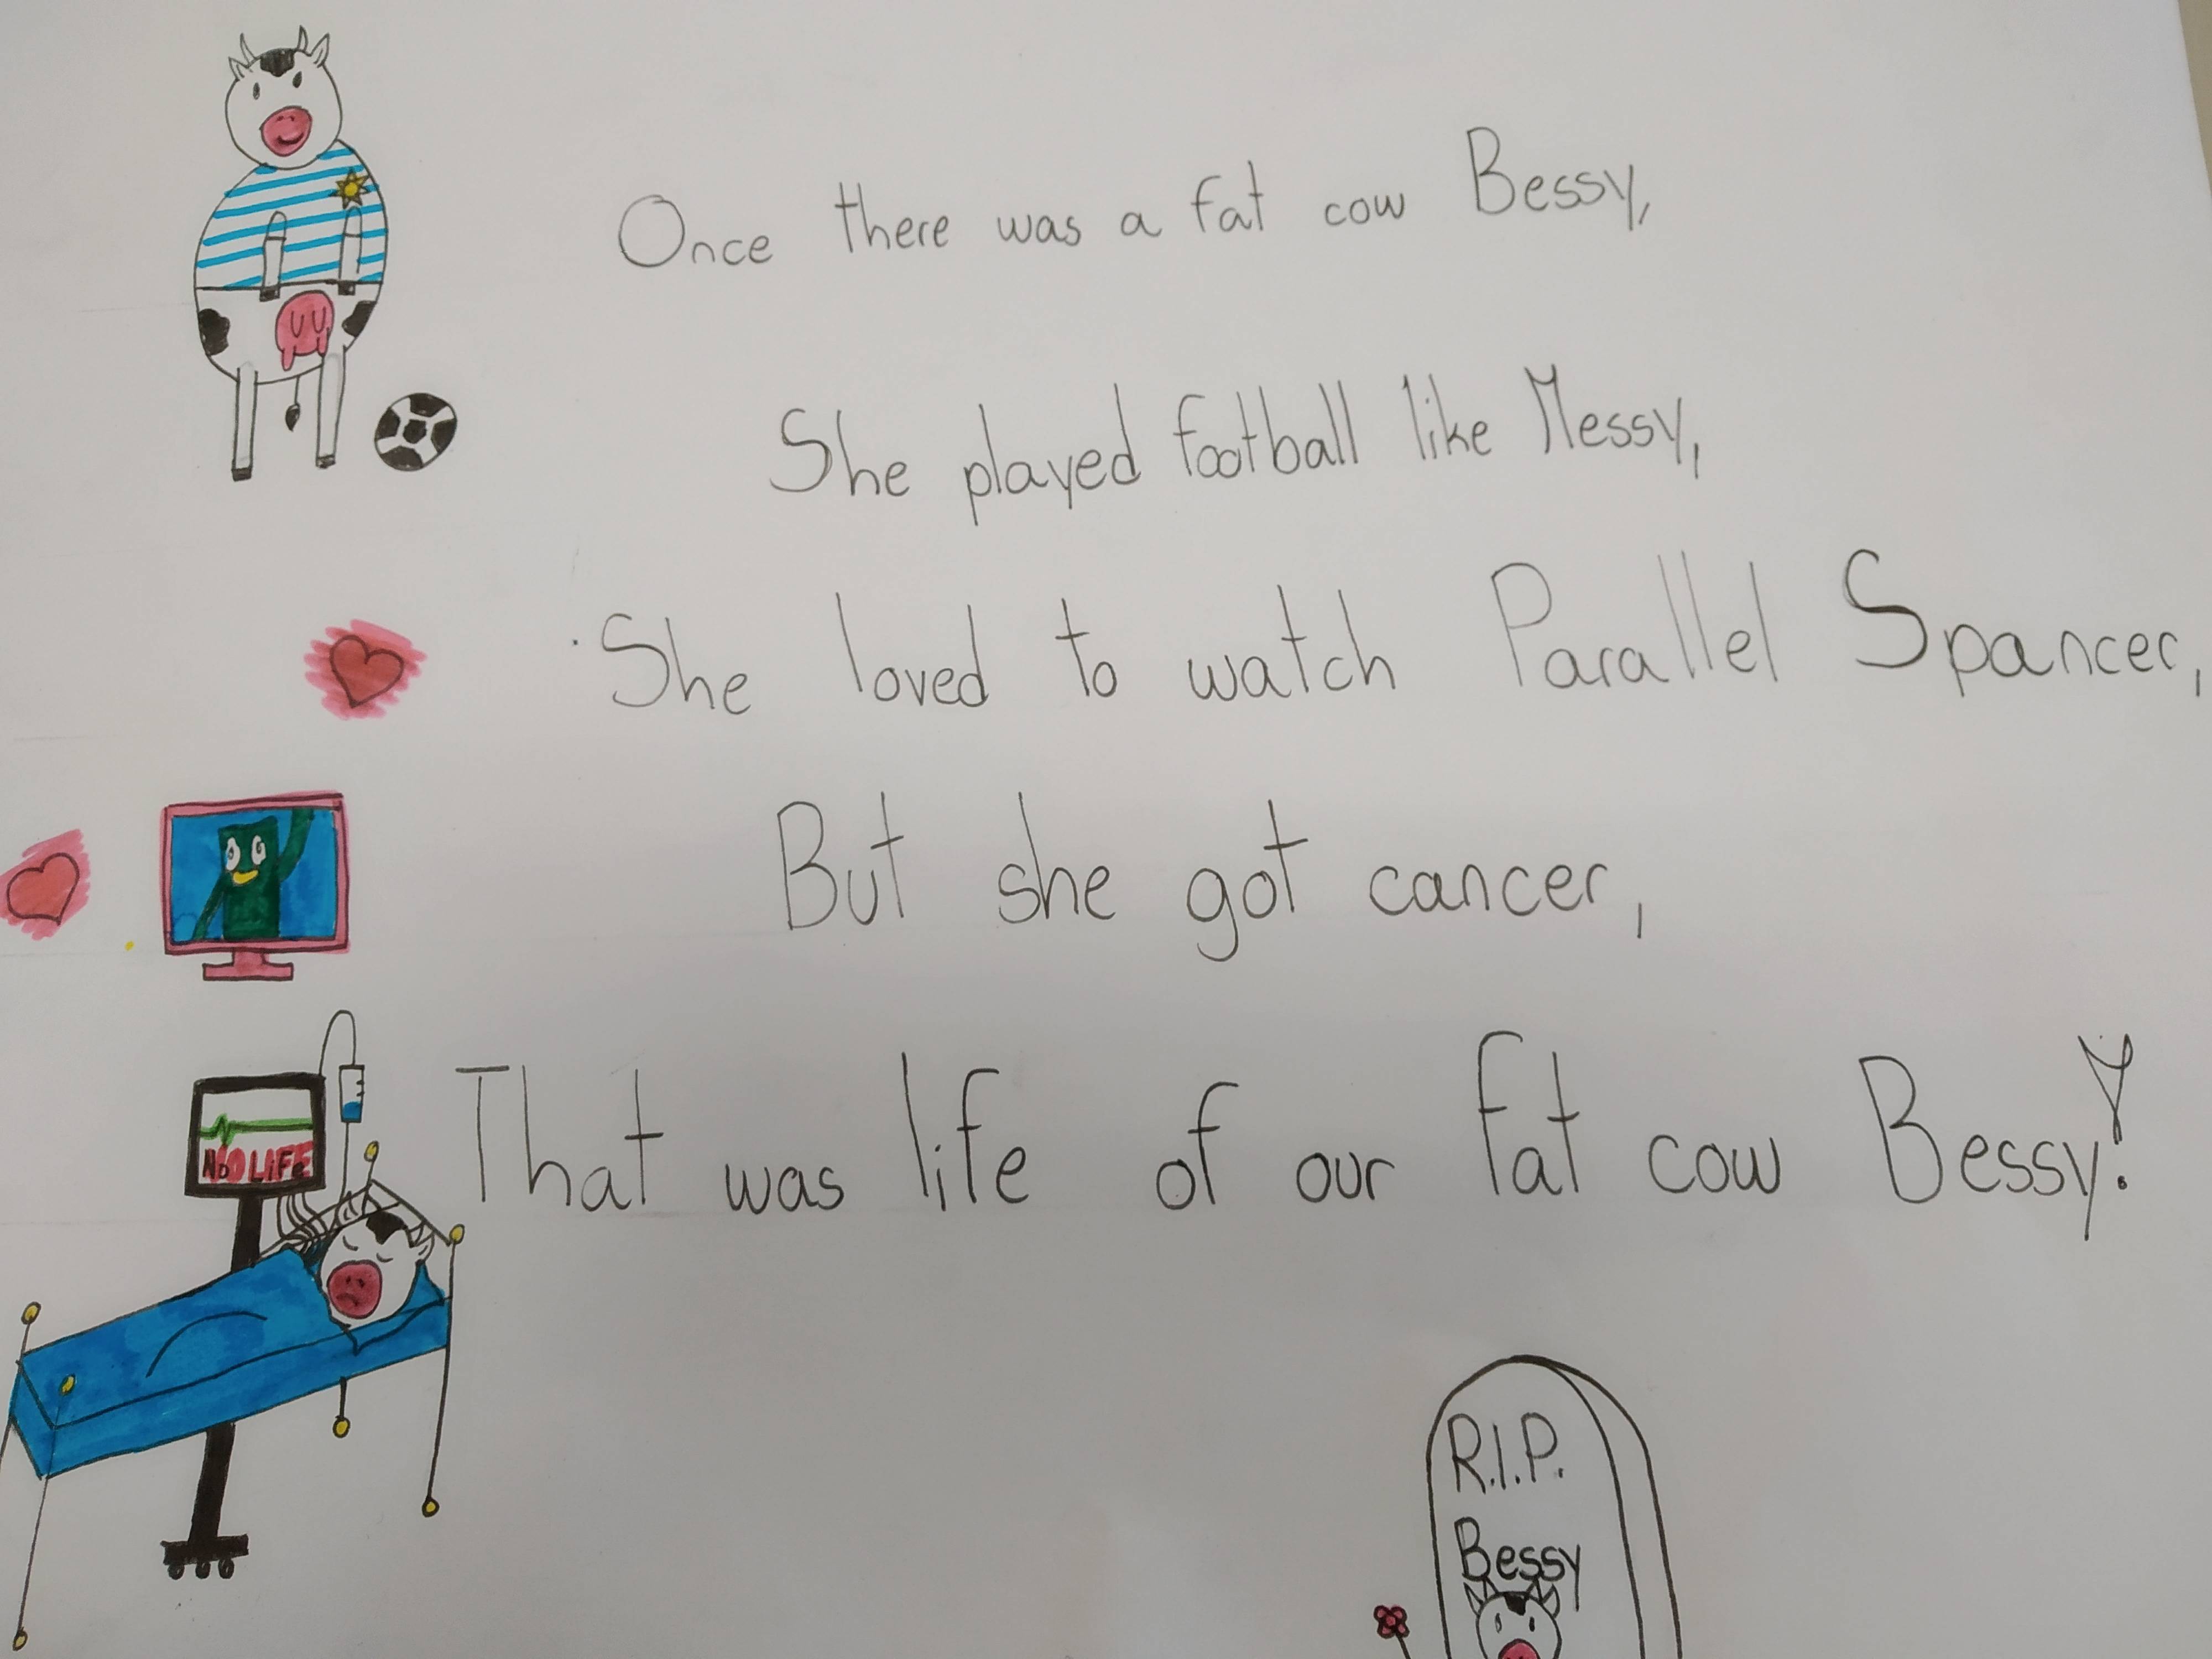 Once there was a fat cow Bessy,
She played football like Messy,
She loved to watch Parallel Spancer,
But she got cancer,
That was life of our fat cow Bessy!
NO LIFE
R.I.P.
Bessy